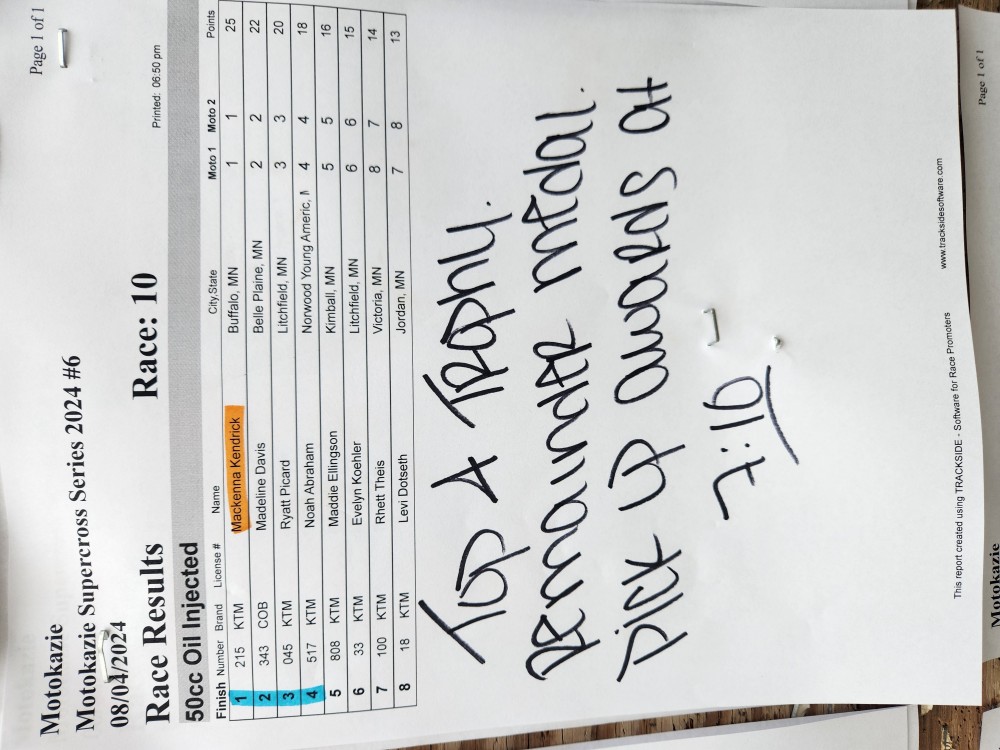 Page 1 of 1
Motokazie
Motokazie Supercross Series 2024 #6
08/04/2024
Race Results Race: 10 Printed: 06:50 pm
50cc Oil Injected
Finish Number Brand License # Name City,State Moto 1 Moto 2 Points
1 215 KTM Mackenna Kendrick Buffalo, MN 1 1 25
2 343 COB Madeline Davis Belle Plaine, MN 2 2 22
3 045 KTM Ryatt Picard Litchfield, MN 3 3 20
4 517 KTM Noah Abraham Norwood Young Americ, M 4 4 18
5 808 KTM Maddie Ellingson Kimball, MN 5 5 16
6 33 KTM Evelyn Koehler Litchfield, MN 6 6 15
7 100 KTM Rhett Theis Victoria, MN 8 7 14
8 18 KTM Levi Dotseth Jordan, MN 7 8 13
Top 4 Trophy.
Remainder medal.
Pick up awards at
7:10
This report created using TRACKSIDE - Software for Race Promoters www.tracksidesoftware.com
Page 1 of 1
Motokazie